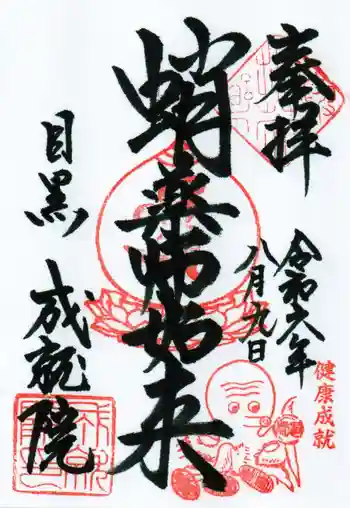 奉拝
令和六年
八月九日
健康成就
蛸薬師如来
目黒
成就院